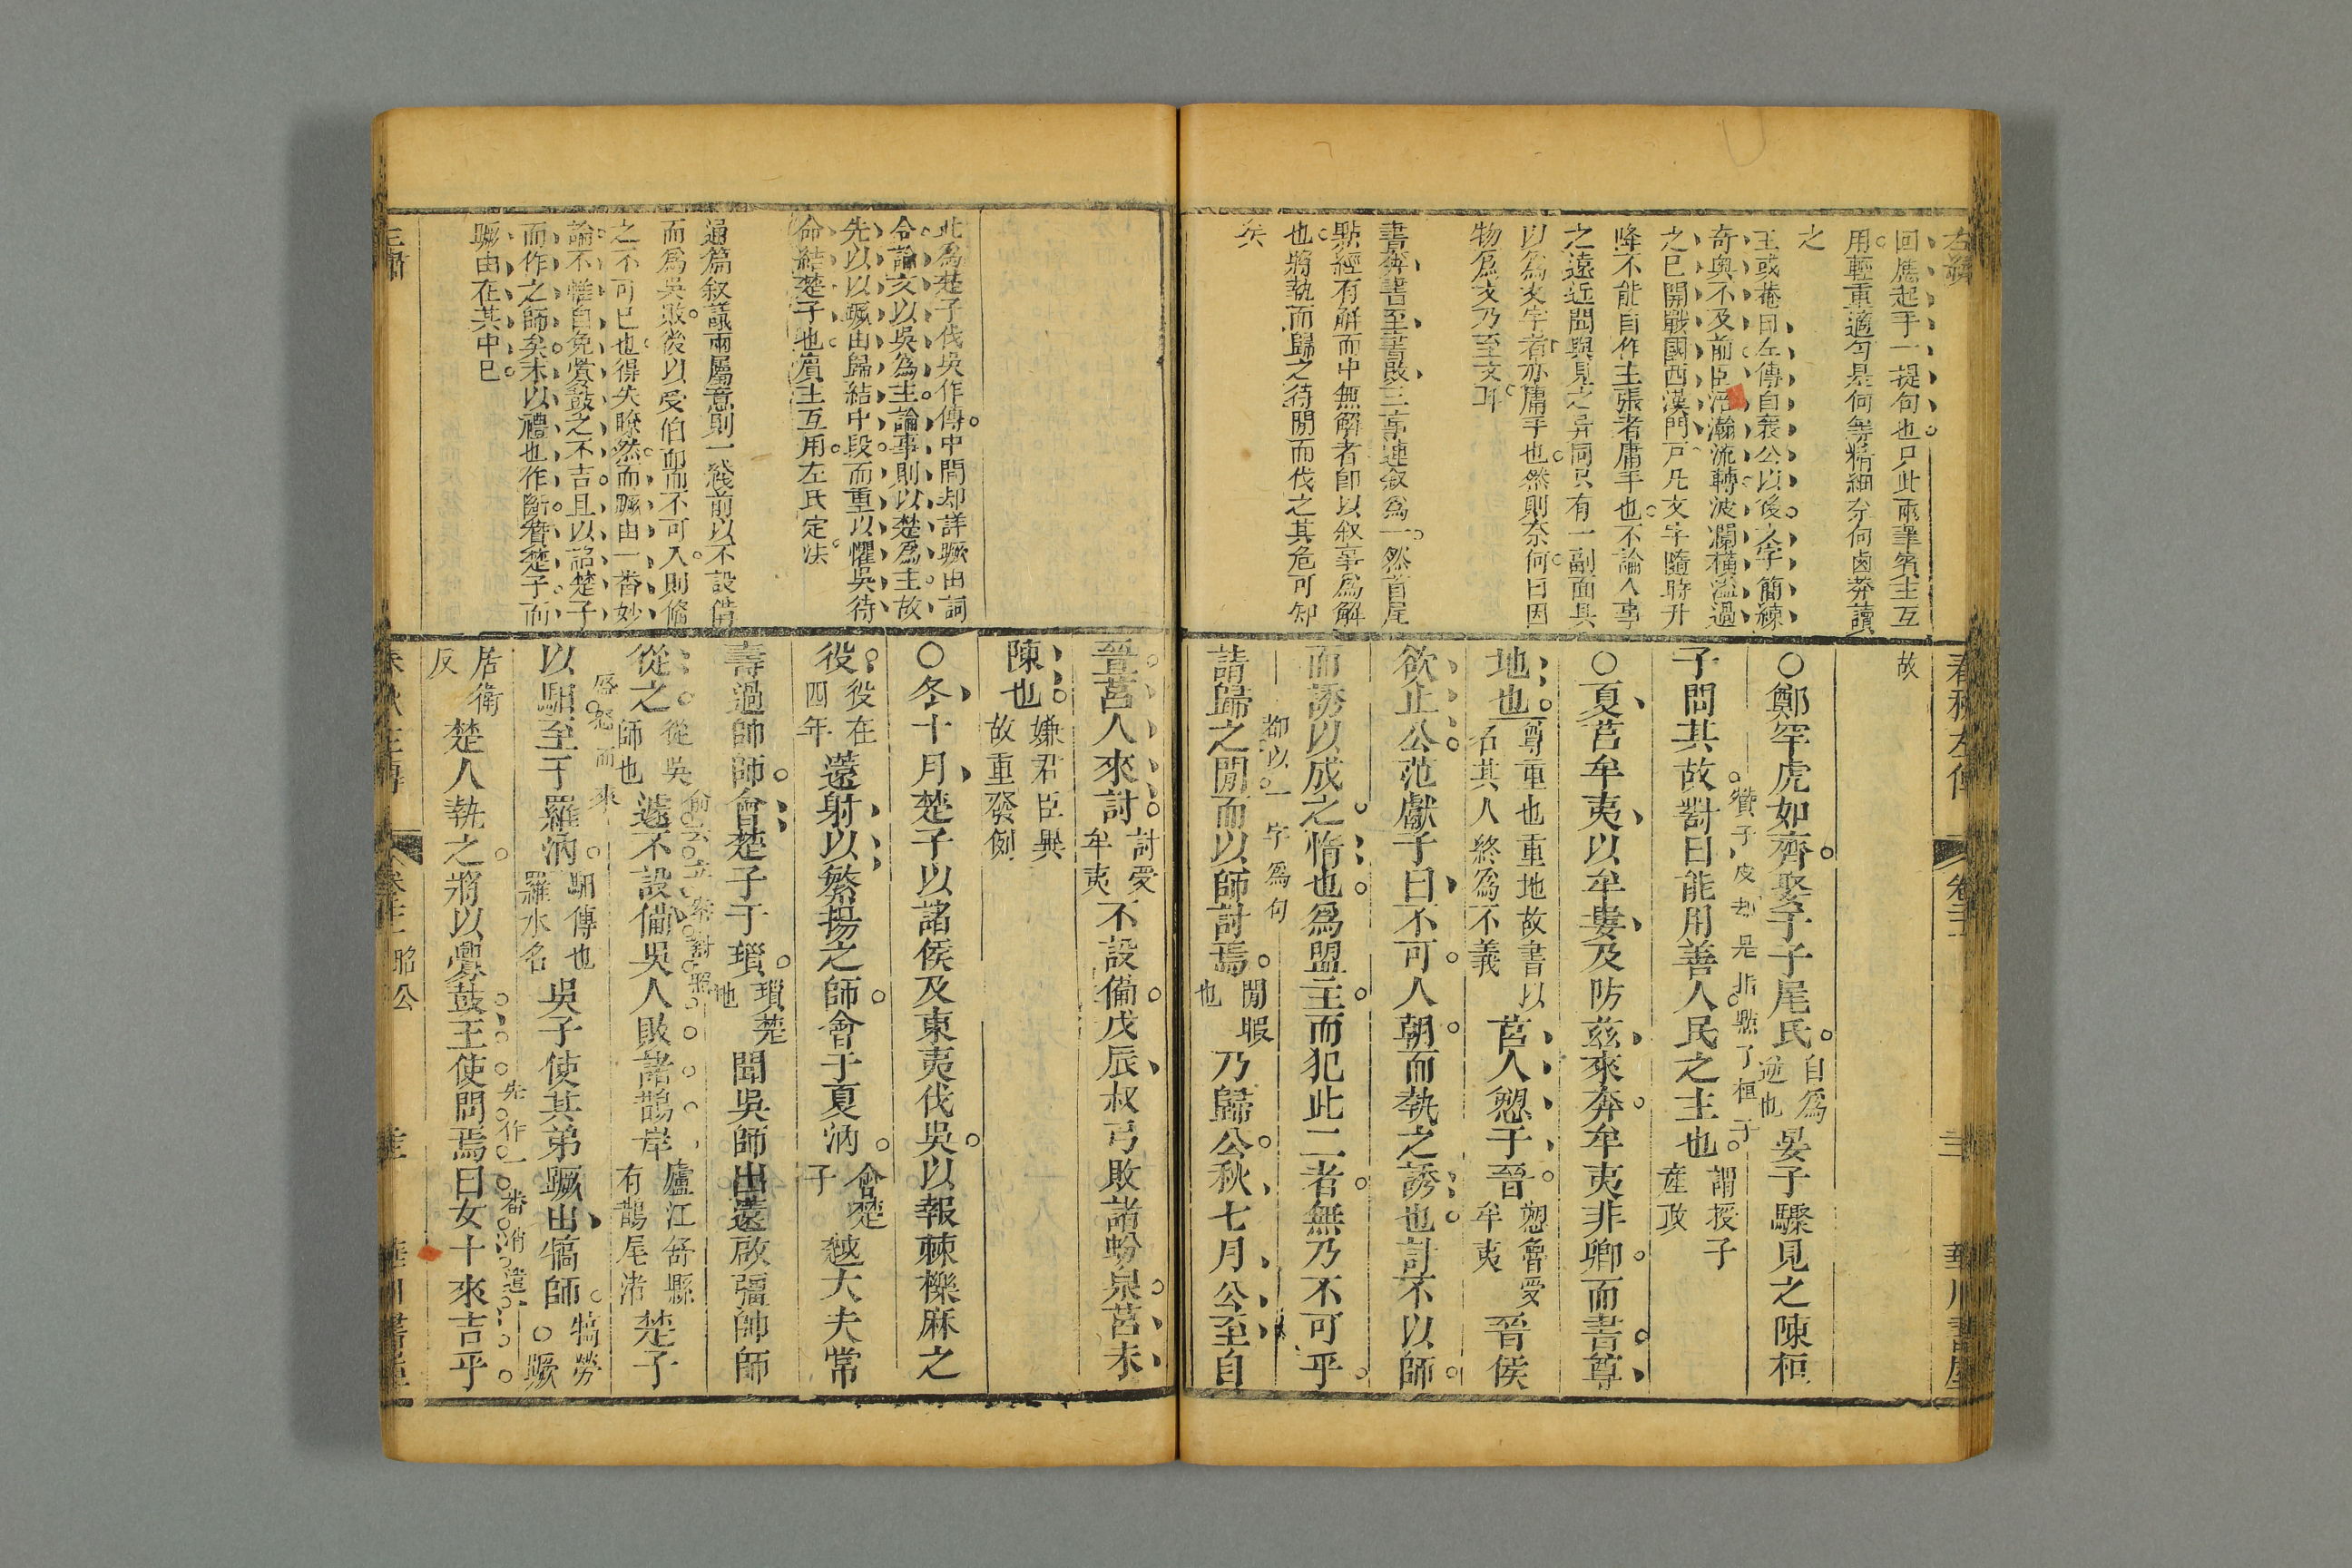 左繡
回應起手一提句也只此兩筆賓主互
用輕重適勻是何等精細奈何鹵莽讀
之
王或菴曰左傳自襄公以後文字簡練
奇奧不及前臣浩瀚流轉波瀾橫溢過
之已開戰國西漢門戸凡文字隨時升
降不能自作主張者庸手也不論人事
之遠近閒與見之异同只有一副面具
以為文字者亦庸手也然則奈何曰因
物爲文乃至文耳
書奔書至書敗三事連叙爲一然首尾
點經有解而中無解者卽以叙事爲解
也將執而歸之待閒而伐之其危可知
矣
春秋左傳
卷二十一
華川書屋
故
○鄭罕虎如齊娶于子尾氏自爲逆也晏子驟見之陳桓
贊子皮却是指點了桓子
子問其故對曰能用善人民之主也謂授子產政
○夏莒牟夷以牟婁及防茲來奔牟夷非卿而書尊
地也尊重也重地故書以名其人終爲不義莒人愬于晉愬魯受牟夷晉侯
欲止公范獻子曰不可人朝而執之誘也討不以師
而誘以成之惰也爲盟主而犯此二者無乃不可乎
都以一字爲句
請歸之閒而以師討焉閒暇也乃歸公秋七月公至自
此爲楚子伐吳作傳中間却詳蹶由詞
令論文以吳爲主論事則以楚爲主故
先以以蹶由歸結中段而重以懼吳待
命結楚子也賓主互用左氏定法
通篇叙議兩屬意則一綫前以不設備
而爲吳敗後以受伯卹而不可入則備
之不可已也得失瞭然而蹶由一番妙
論不惟自免釁鼓之不吉且以詔楚子
而作之師矣末以禮也作斷贊楚子而
蹶由在其中已
晉莒人來討討受牟夷不設備戊辰叔弓敗諸蚡泉莒未
陳也嫌君臣異故重發例
○冬十月楚子以諸侯及東夷伐吳以報棘櫟麻之
役役在四年薳射以繁揚之師會于夏汭會楚子越大夫常
壽過帥師會楚子于瑣瑣楚地聞吳師出薳啟彊帥師
從之從吳師也遽不設備吳人敗諸鵲岸廬江舒縣有鵲尾渚楚子
以馹至于羅汭馹傳也羅水名吳子使其弟蹶由犒師犒勞○蹶
先作一番消遣
居衛反楚人執之將以釁鼓王使問焉曰女卜來吉乎
昭公